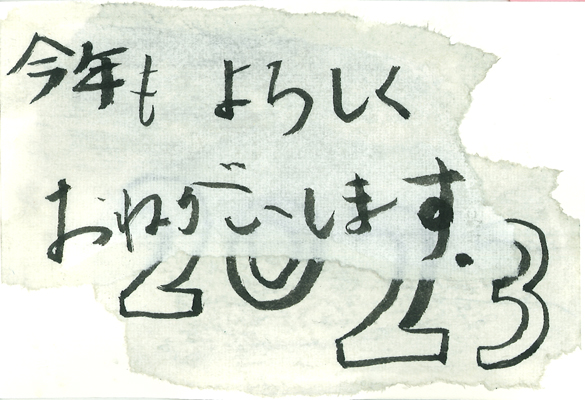 今年も よろしく
おねがいします.
2023